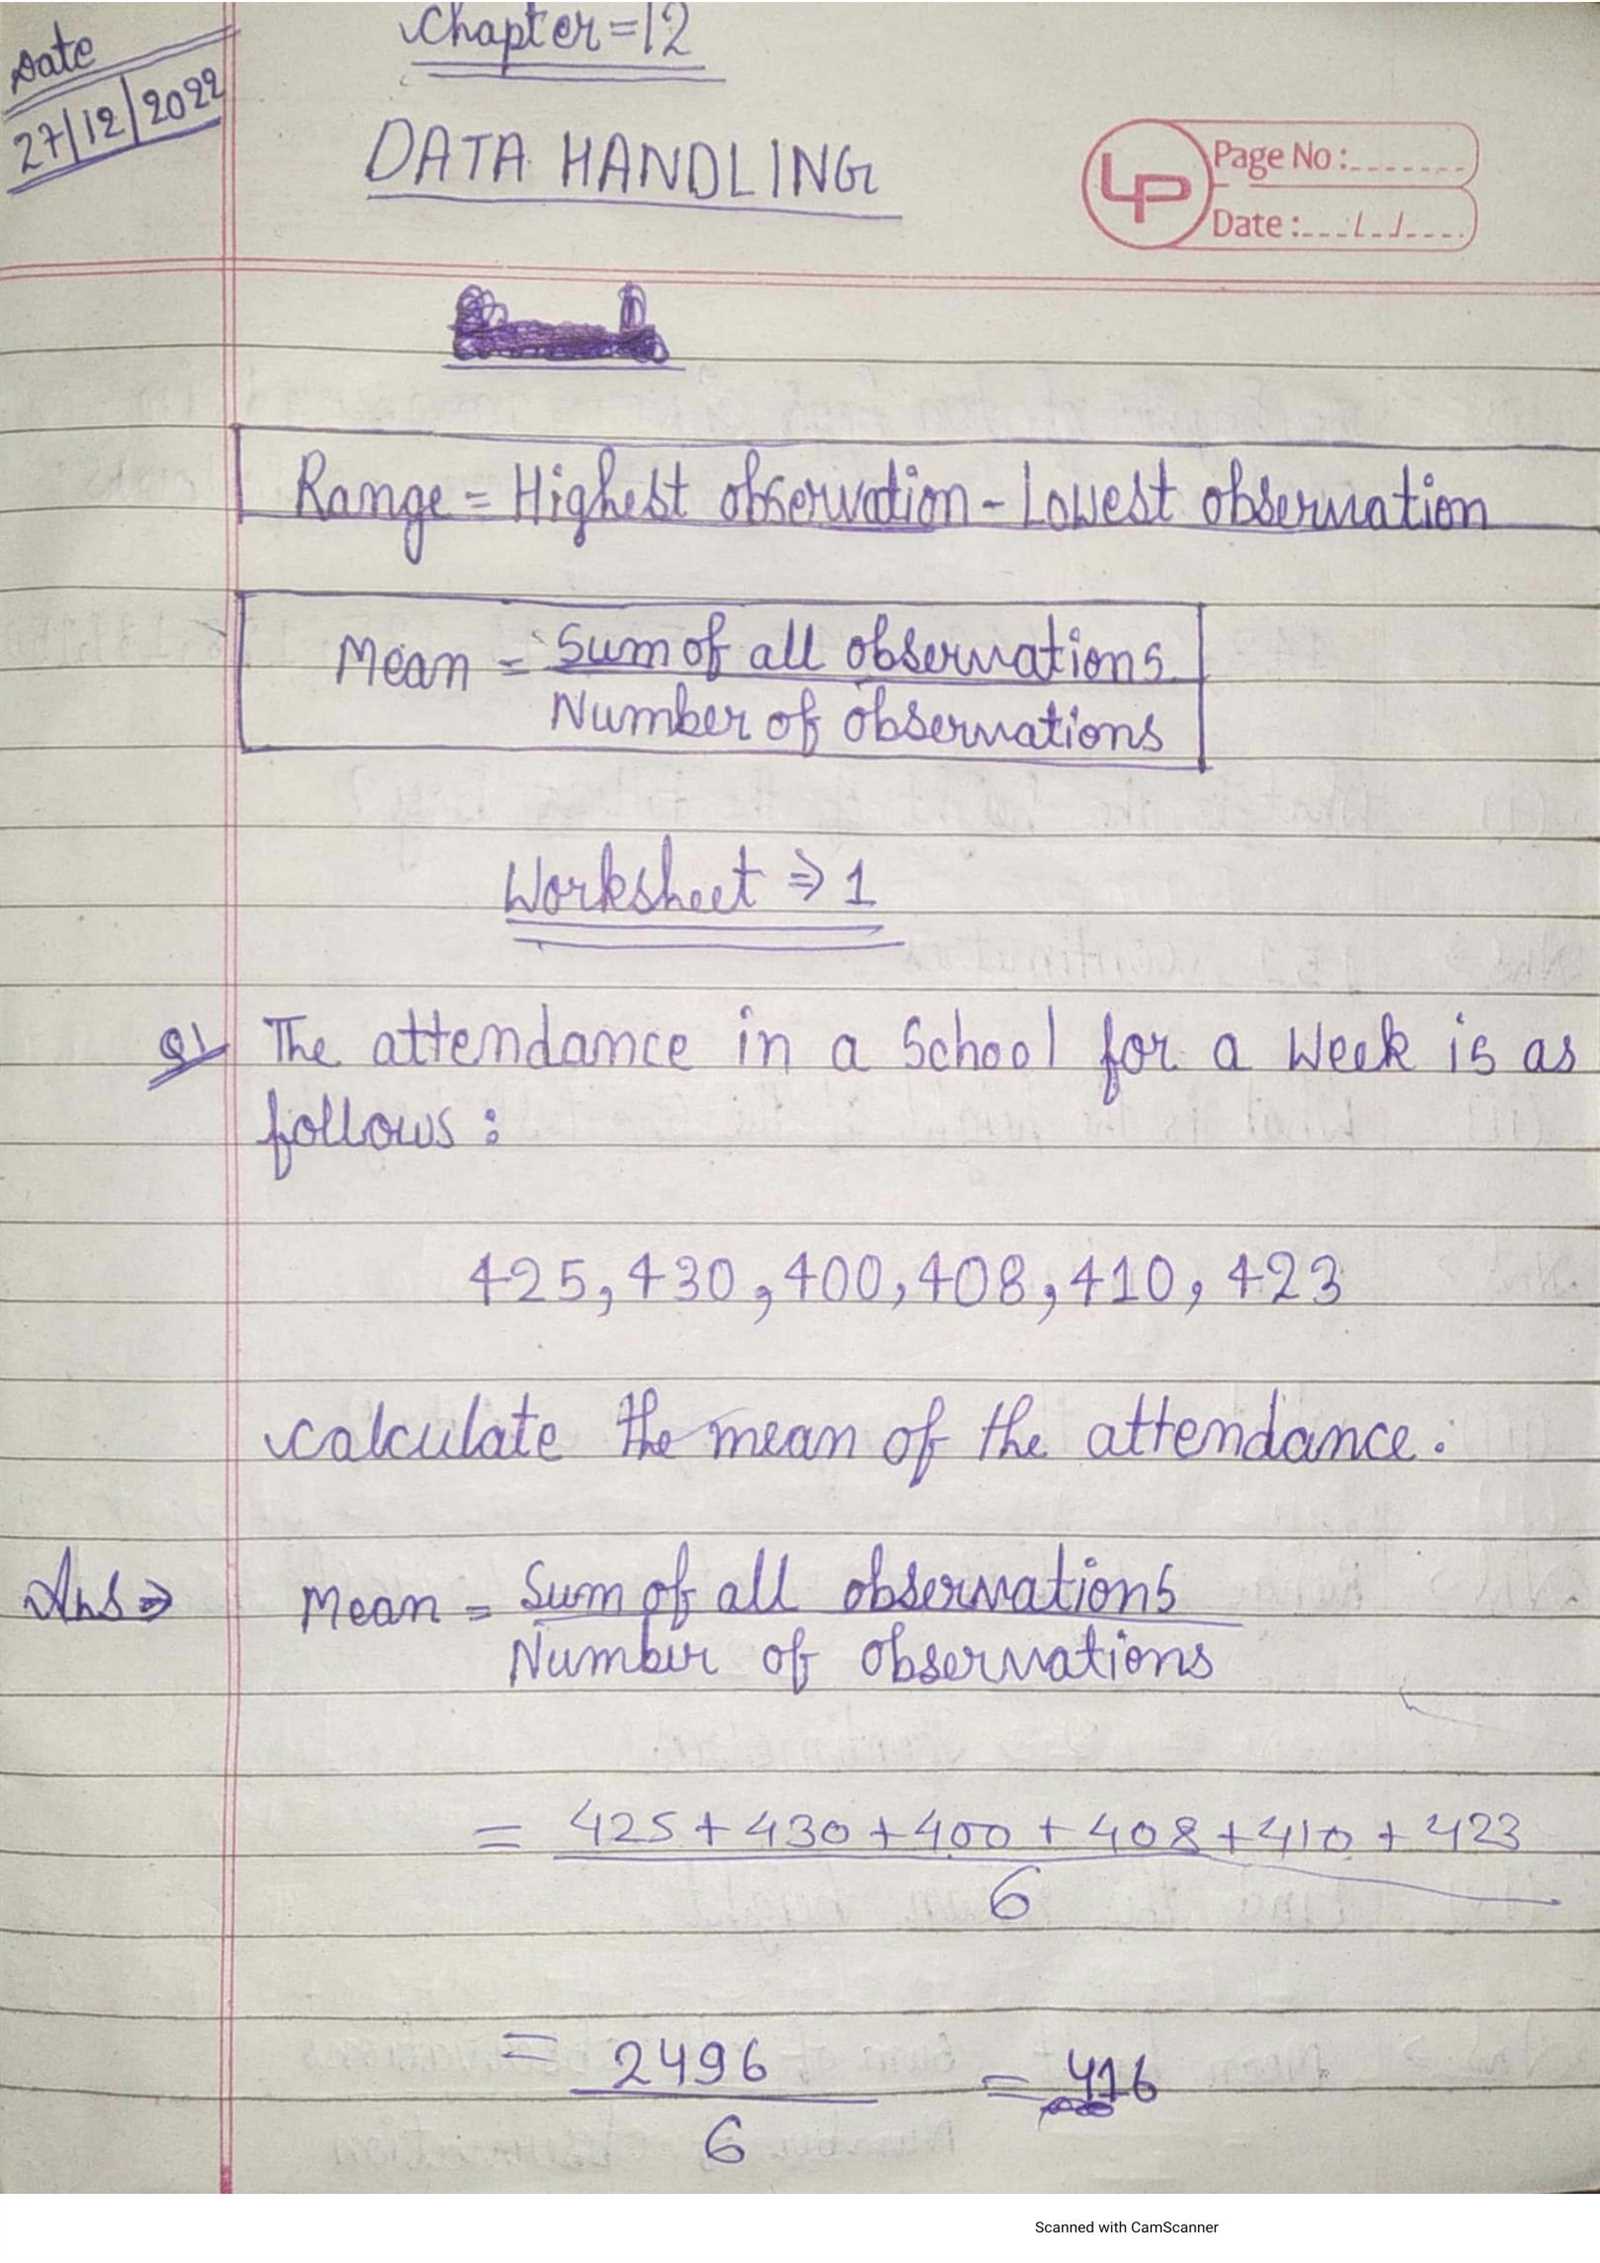 Date
27/12/2022
Chapter=12
DATA HANDLING
LP
Page No:
Date:
Range = Highest observation - Lowest observation
Mean = Sum of all observations
Number of observations
Worksheet ⇒ 1
Q1 The attendance in a School for a Week is as
follows:
425, 430, 400, 408, 410, 423
calculate the mean of the attendance.
Ans ⇒ Mean = Sum of all observations
Number of observations
= 425 + 430 + 400 + 408 + 410 + 423
6
= 2496 = 416
6
Scanned with CamScanner